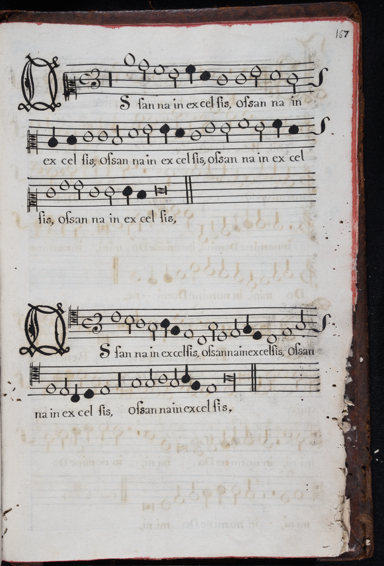 167
O S san na in excel sis, ossan na in
ex cel sis, ossan na in ex cel sis, ossan na in ex cel
sis, ossan na in ex cel sis,
O S san na in excelsis, ossannainexcelsis, ossan
na in ex cel sis, ossannainexcelsis.